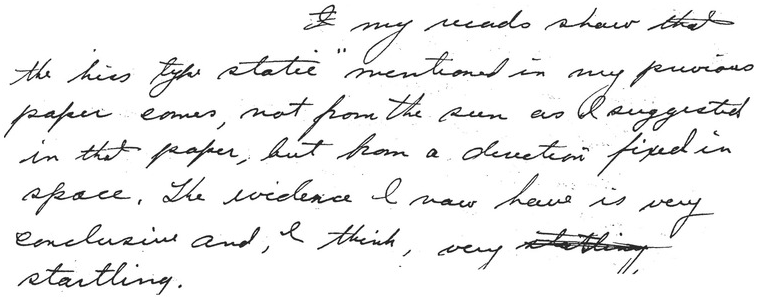 my reads show that
the hiss type static" mentioned in my previous
paper comes, not from the sun as I suggested
in that paper, but from a direction fixed in
space. The evidence I now have is very
conclusive and, I think, very startling
startling.